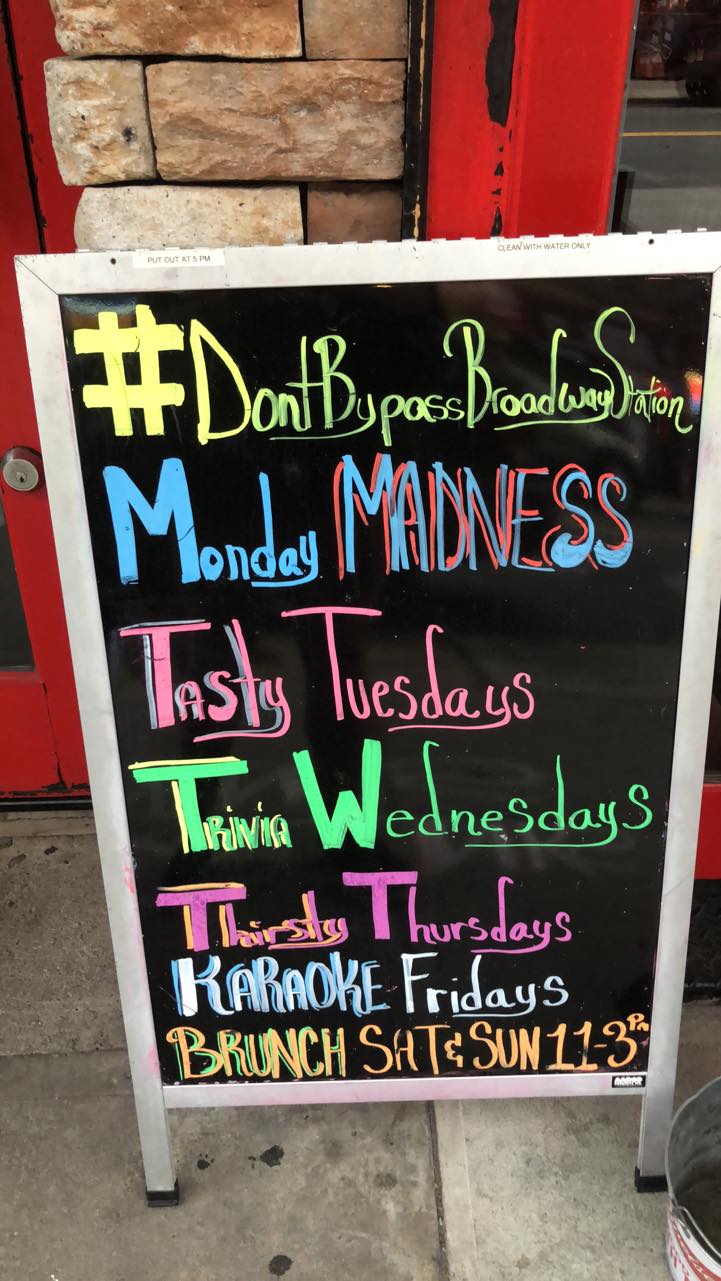 PUT OUT AT 5 PM
CLEAN WITH WATER ONLY
#DontBypassBroadwayStation
Monday MADNESS
Tasty Tuesdays
Trivia Wednesdays
Thirsty Thursdays
KARAOKE Fridays
BRUNCH SAT & SUN 11-3Pm